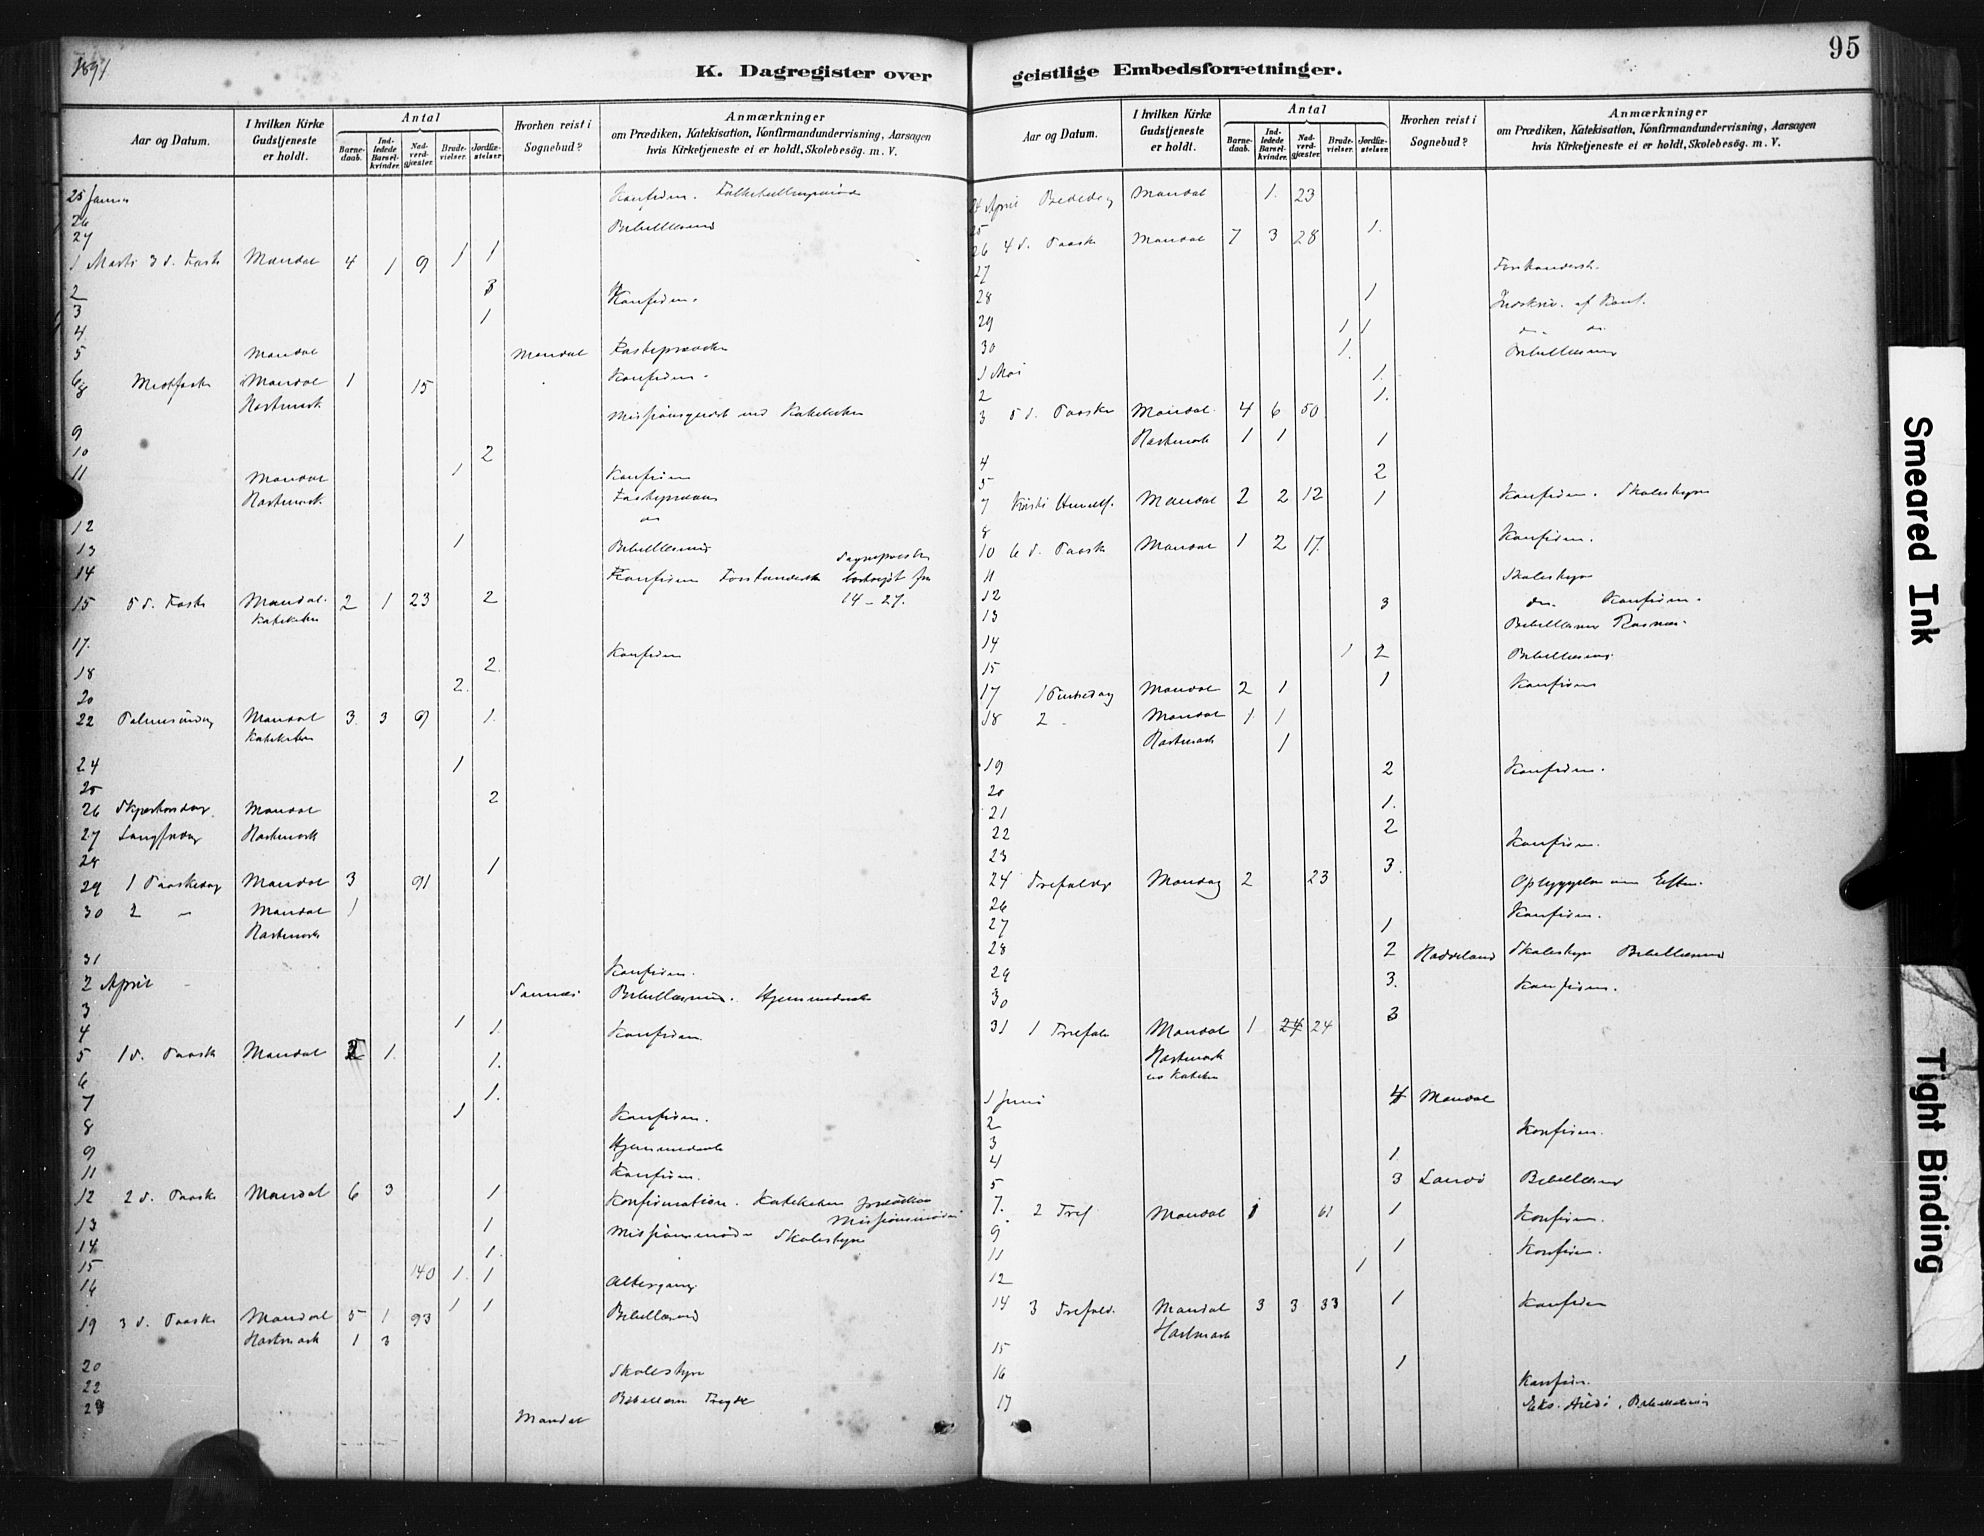 1891
K. Dagregister over
Aar og Datum.
I hvilken Kirke Gudstjeneste er holdt.
Antal
Barnedaab.
Indledede Barselkvinder.
Nadverdgjæster.
Brudevielser.
Jordfæstelser.
Hvorhen reist i Sognebud?
Anmærkninger
om Prædiken, Katekisation, Konfirmandundervisning, Aarsagen
hvis Kirketjeneste ei er holdt, Skolebesög. m. V.
25 Konfirm.
26 Bibellæsning
27
1 Marts 3 S. Faste Mandal 4 1 9 1 1
2 3 Konfirm.
3 1
4
5 Mandal Mandal Fasteprædiken
6 Konfirm.
8 Midfaste Mandal 1 15
Hartmark Missionsgudst ved Kateketen
9
10 2
11 Mandal 1 Konfirm
Hartmark
12 do
13 1 Bibellæsning
14 Konfirm Forstandersk Sognepresten bortreist fra
15 5 S. Faste Mandal 2 1 23 2 14-27.
Kateketen
17. Konfirm
18 2.
20 2.
22 Palmesöndag Mandal 3 3 61 1.
Kateketen
24 1
25
26 Skjærtorsdag Mandal 2
27 Langfredag Hartmark
28
29 1 Paaskedag Mandal 3 91 1
30 2 " Mandal 1
Hartmark
31
2 April Konfirm.
3 Bibellæsning. Hjemmedaab
4 1 1. Konfirm.
5 1 S. Paaske Mandal 1. 1.
6
7 1.
8 1 Konfirm.
9 Hjemmedaab
11 Konfirm.
12 2 S. Paaske Mandal 6 3 1 Konfirmation. Kateketen prædiken
13 1 Missionsmöde Skolestyre Missionsmöde
14 1.
15 140 1. 1
16 Altergang
19 3 S. Paaske Mandal 5 1 93 1 1 Bibellæsning
Hartmark 1 3
20 Skolestyre
22
23 Mandal Bibellæsn Tregde
95
geistlige Embedsforretninger.
Aar og Datum.
I hvilken Kirke Gudstjeneste er holdt.
Antal
Barnedaab.
Indledede Barselkvinder.
Nadverdgjæster.
Brudevielser.
Jordfæstelser.
Hvorhen reist i Sognebud?
Anmærkninger
om Prædiken, Katekisation, Konfirmandundervisning, Aarsagen
hvis Kirketjeneste ei er holdt, Skolebesög. m. V.
24 April Bededag Mandal 1. 23
25 1.
26 4 S. Paaske Mandal 7 3 28
27 Forstandersk.
28 1 Indskriv. af Konf.
29 1 1 do do
30 1. Bibellæsning
1 Mai 1.
2 1.
3 5 S. Paaske Mandal 4 6 50
Hartmark 1 1 1
4
5 2
7 Kristi Himmelf. Mandal 2 2 12 1 Konfirm. Skolestyre
8
10 6 S. Paaske Mandal 1 2 17. Konfirm.
11 Skolestyre
12 3 do. Konfirm.
13 Bibellæsning
14 1 2 Bibellæsning
15
17 1 Pintsedag Mandal 2 1 1 Konfirm
18 2 " Mandal 1 1
Hartmark 1
19 2 Konfirm.
20
21 1.
22 2
23 Konfirm.
24 Trefoldigh Mandag 2 23 3.
26
27 1 Konfirm.
28 2 Skolestyre Bibellæsning
29 3. Konfirm.
30
31 1 Trefold Mandal 1 24 24 3
Hartmark
ved Kateketen
1 Juni 4 Mandal
2
3 Konfirm.
4 1.
5 3 Bibellæsning
7. 2 Tref Mandal 1 61 1 Konfirm.
9
11 1 Konfirm.
12 1
14 3 Trefold. Mandal 3 3 33 1 Konfirm
Hartmark
15
16 1 Konfirm.
17 Bibellæsning
Smeared Ink
Tight Binding